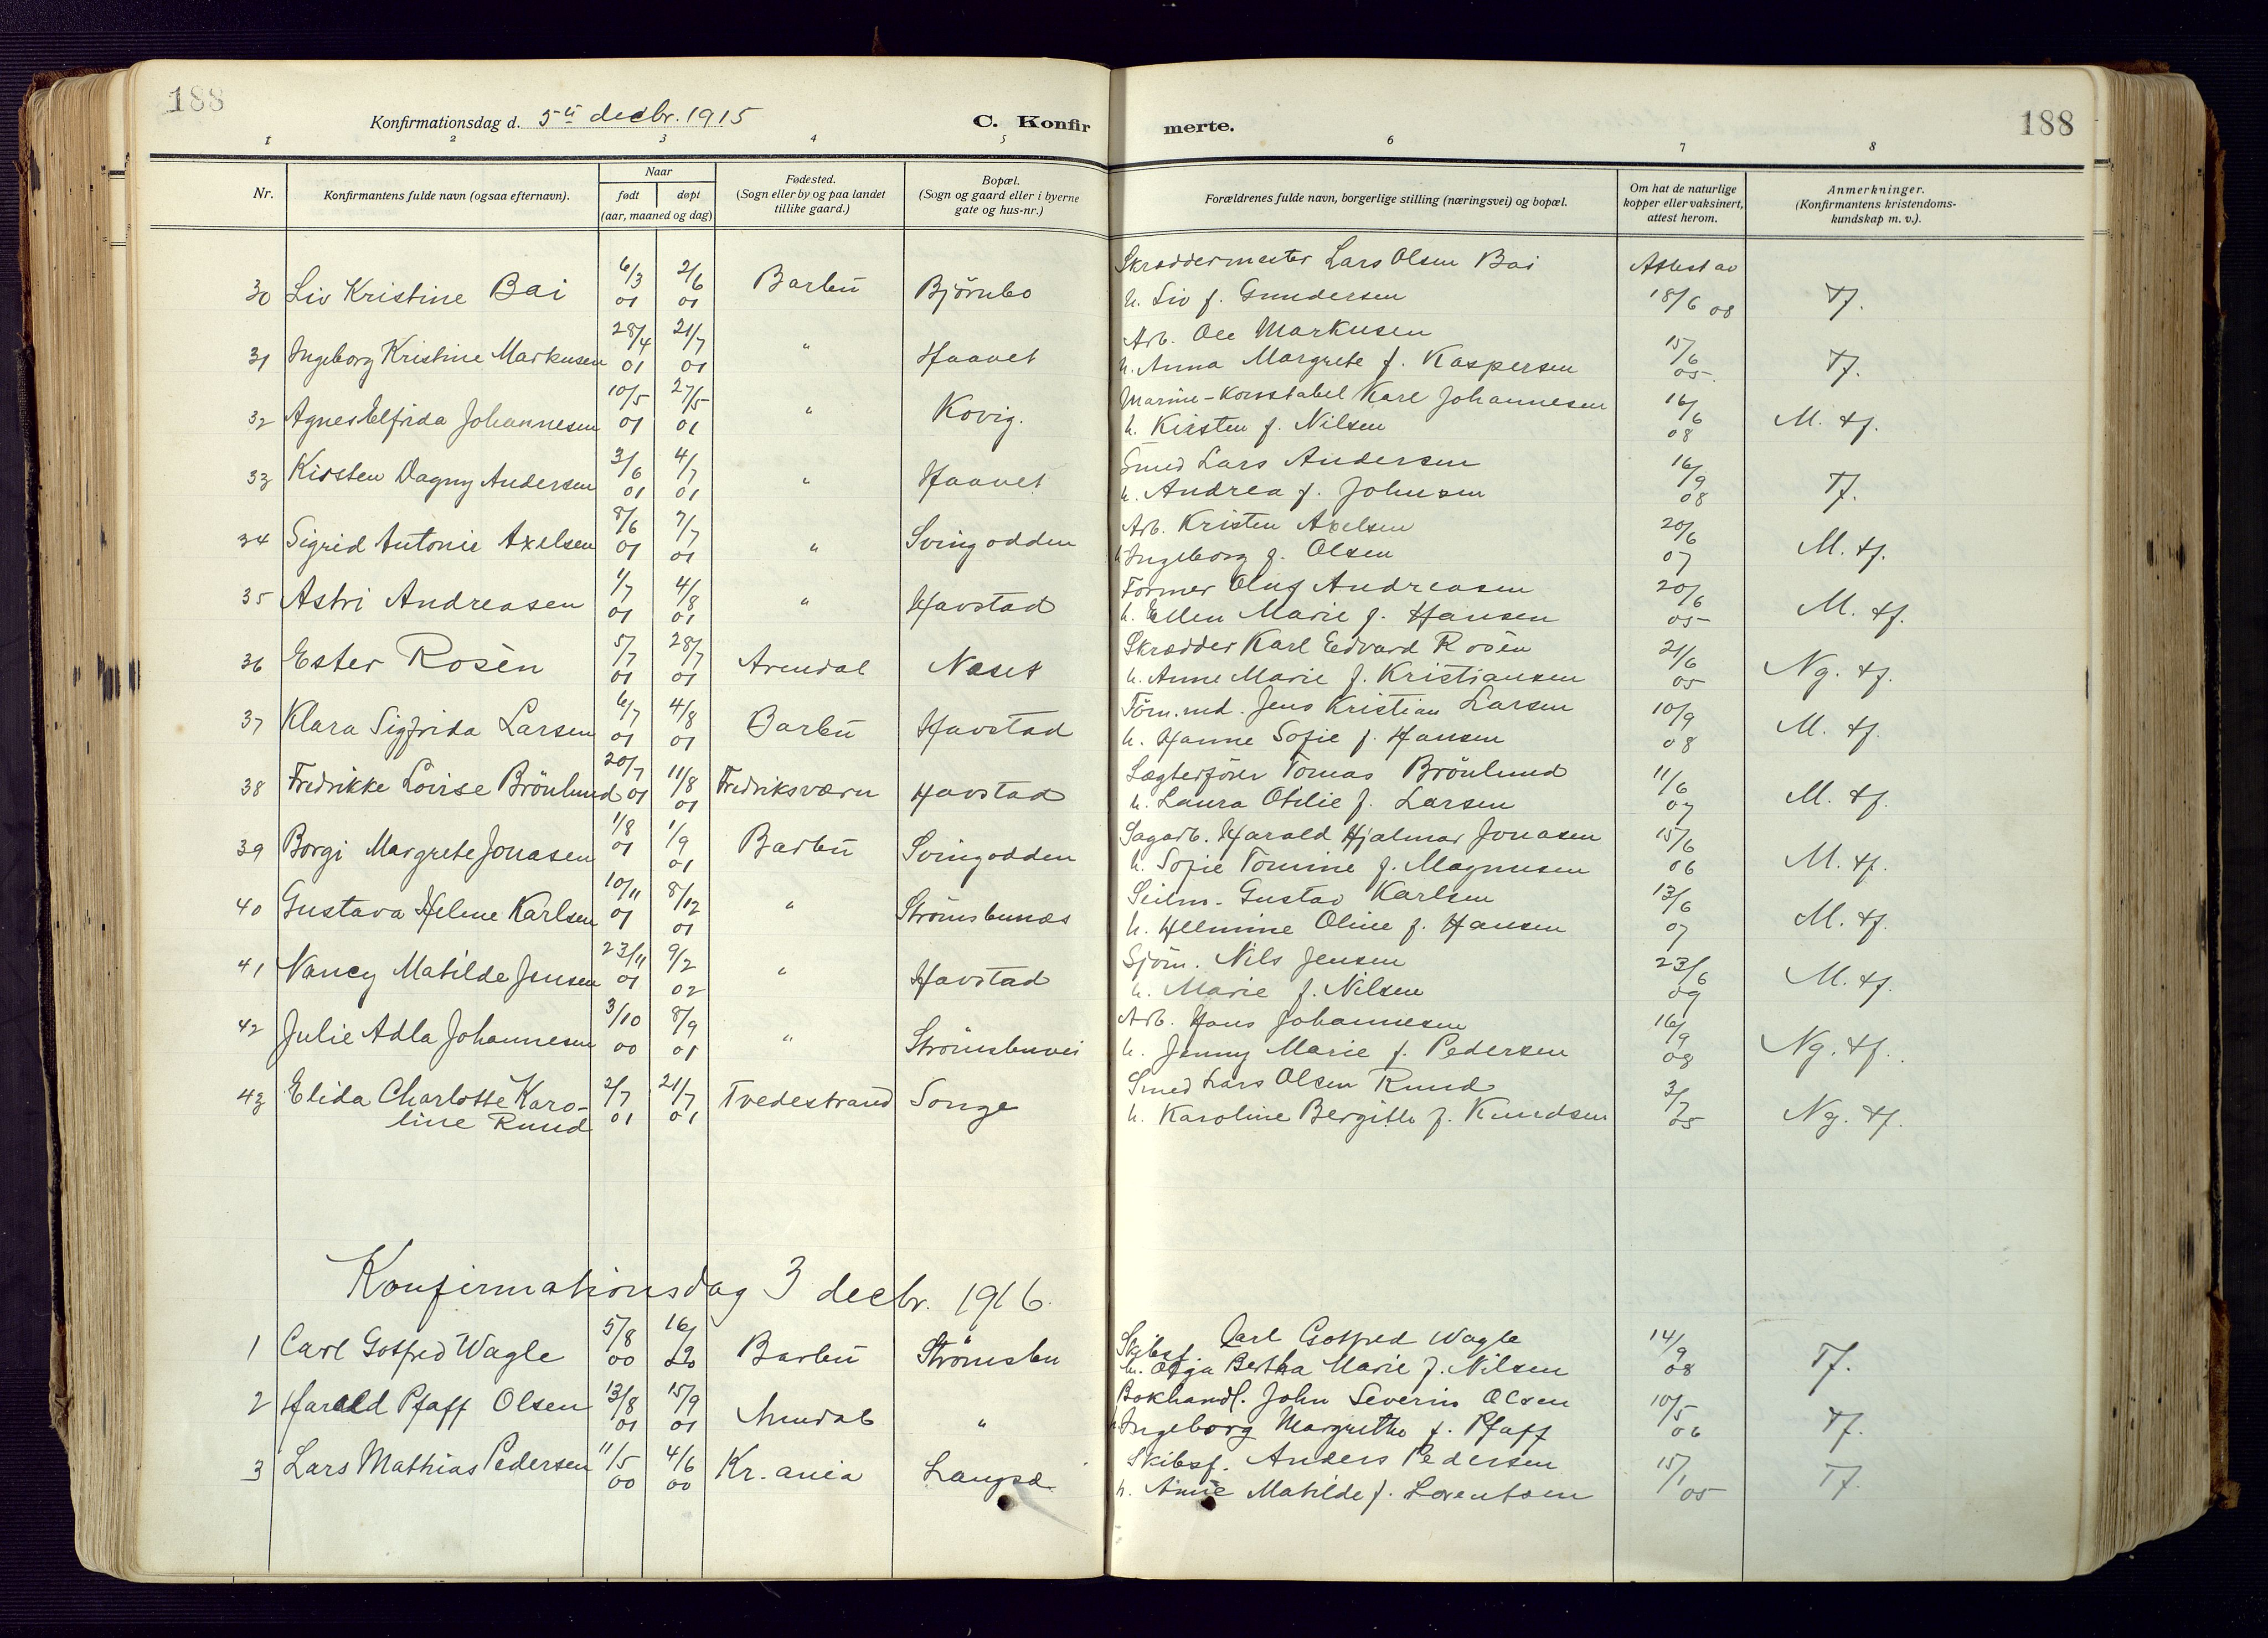 188
188
Konfirmationsdag d. 5ti decbr. 1915
C. Konfirmerte.
1 2 3 4 5 6 7 8
Nr.
Konfirmantens fulde navn (ogsaa efternavn).
Naar
født døpt
(aar, maaned og dag)
Fødested.
(Sogn eller by og paa landet
tillike gaard.)
Bopæl.
(Sogn og gaard eller i byerne
gate og hus-nr.)
Forældrenes fulde navn, borgerlige stilling (næringsvei) og bopæl.
Om hat de naturlige
kopper eller vaksinert,
attest herom.
Anmerkninger.
(Konfirmantens kristendoms-
kundskap m. v.).
30 Liv Kristine Bai 6/3 01 2/6 01 Barbu Björnbo Skræddermester Lars Olsen Bai Attest av
h. Liv f. Gundersen 18/6 08 Tf.
31 Ingeborg Kristine Markusen 28/4 01 21/7 01 " Haavet Arb. Ole Markusen
h. Anna Margrete f. Kaspersen 15/6 05 Tf.
32 Agnes Elfrida Johannesen 10/5 01 27/5 01 " Kovig. Marine-Konstabel Karl Johannesen
h. Kirsten f. Nilsen 16/6 08 M. tf.
33 Kirsten Dagny Andersen 3/6 01 4/7 01 " Haavet Smed Lars Andersen
h. Andrea f. Johnsen 16/9 08 Tf.
34 Sigrid Antonie Axelsen 8/6 01 7/7 01 " Svingodden Arb. Kristen Axelsen
h. Ingeborg f. Olsen 20/6 07 M. tf.
35 Astri Andreasen 1/7 01 4/8 01 " Havstad Former Oluf Andreasen
h. Ellen Marie f. Hansen 20/6 05 M. tf.
36 Ester Rosèn 5/7 01 28/7 01 Arendal Næset Skrædder Karl Edvard Rosèn
h. Anne Marie f. Kristiansen 21/6 05 Ng. tf.
37 Klara Sigfrida Larsen 6/7 01 4/8 01 Barbu Havstad Töm.md. Jens Kristian Larsen
h. Hanne Sofie f. Hansen 10/9 08 M. tf.
38 Fredrikke Lovise Brönlund 20/7 01 11/8 01 Fredriksværn Havstad Lægterförer Tomas Brönlund
h. Laura Otilie f. Larsen 11/6 07 M. tf.
39 Borgi Margrete Jonasen 1/8 01 1/9 01 Barbu Svingodden Sagarb. Harald Hjalmar Jonasen
h. Sofie Tomine f. Magnusen 15/6 06 M. tf.
40 Gustava Helene Karlsen 10/11 01 8/12 01 " Strömsbunæs Seilm. Gustav Karlsen
h. Helmine Oline f. Hansen 13/6 07 M. tf.
41 Nancy Matilde Jensen 23/11 01 9/2 02 " Havstad Sjöm. Nils Jensen
h. Marie f. Nilsen 23/6 09 M. tf.
42 Julie Adla Johannesen 3/10 00 8/9 01 " Strömsbuvei Arb. Hans Johannesen
h. Jenny Marie f. Pedersen 16/9 08 Ng. tf.
43 Elida Charlotte Karo- 2/7 01 21/7 01 Tvedestrand Songe Smed Lars Olsen Ruud
line Ruud h. Karoline Bergitte f. Knudsen 3/7 05 Ng. tf.
Konfirmationsdag 3 decbr. 1916.
1 Carl Gotfred Wagle 5/8 00 16/9 00 Barbu Strömsbu Skibsf. Carl Gotfred Wagle
h. Olga Bertha Marie f. Nilsen 14/9 08 Tf.
2 Harald Pfaff Olsen 13/8 01 15/9 01 Arendal " Bokhandl. John Severin Olsen
h. Ingeborg Margrethe f. Pfaff 10/5 06 tf.
3 Lars Mathias Pedersen 11/5 00 4/6 00 Kr.ania Langsæ Skibsf. Anders Pedersen
h. Anne Matilde f. Lorentsen 15/1 05 Tf.